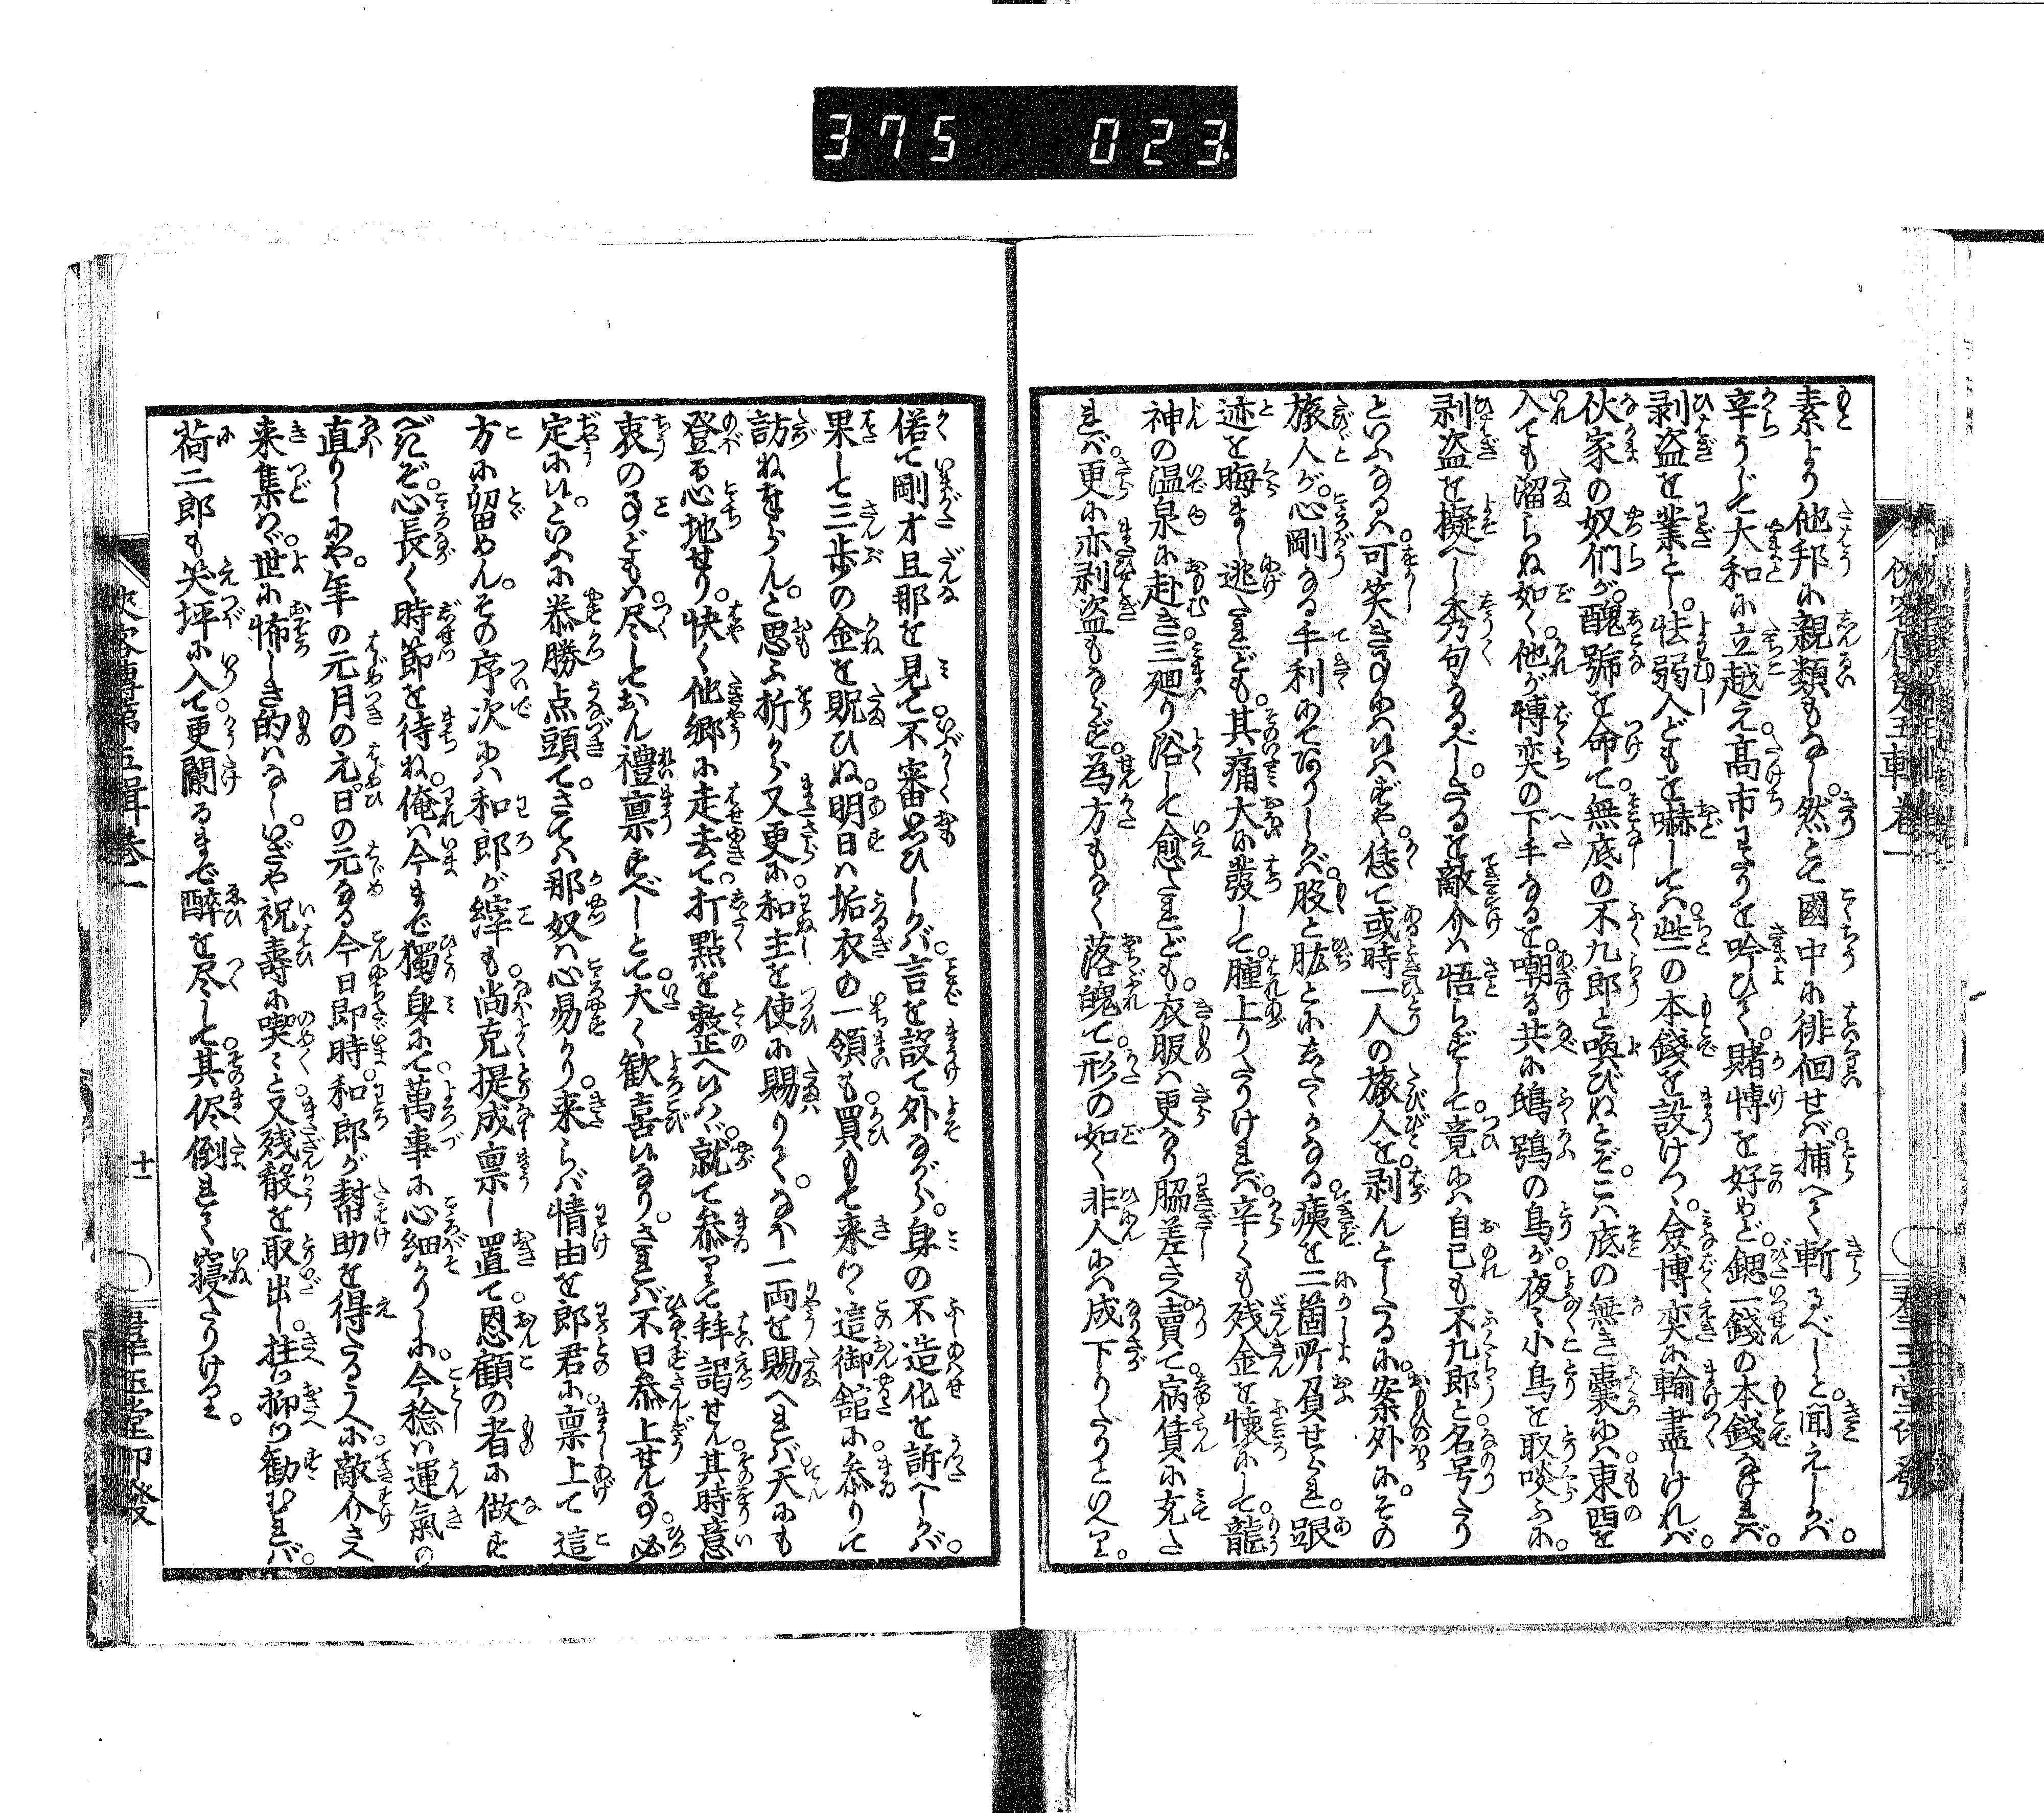 375 023
素より他邦に親類もなし。然とて國中に徘徊せば捕へて斬るべしと。聞えしかば。
辛うじて大和に立越え。高市わたりを吟ひて。賭博を好めど。鐚一錢の本錢なければ。
剥盗を業とし。怯弱人どもを嚇しては。些の本錢を設けつゝ。僉博奕に輸盡しければ。
伙家の奴們が。醜號を命て。無底の不九郎と喚びぬとぞ。こは底の無き嚢には。東西を
入ても溜らぬ如く。他が博奕の下手なるを。嘲る共に鵂鶹の鳥が。夜々小鳥を取啖ふに。
剥盗を擬へし秀句なるべし。さるを敵介は悟らずして。竟には自己も不九郎と名号たり
といふなるは。可笑き事にはいはずや。恁て或時一人の旅人を。剥んとしたるに。案外に。その
旅人が。心剛なる手利にてありしかば。股と肱とにしたゝかなる。痍を二箇所負せられ。跟
迹を晦まし逃たれども。其痛大に發して。腫上りたりければ。辛くも残金を懐にして。龍
神の温泉に赴き。三廻り浴して愈たれども。衣服は更なり脇差さへ。賣て病賃に充た
れば。更に亦剥盗もならず。為方もなく落魄て。形の如く非人には。成下りたりといへり。
偌て剛才且那を見て。不審思ひしかば。言を設て外ながら。身の不造化を訴へしかば。
果して三歩の金を貺ひぬ。明日は垢衣の一領も。買もて来つ。這御舘に。参りて
訪ねまゐらん。と思ふ折から又更に。和主を使に賜りて。なほ一両を賜へれば。天にも
登る心地せり。快く他郷に走去て。打點を整へいはゞ。就て参りて拜謁せん。其時意
衷の事どもは。尽しておん禮禀すべしとて。大く歓喜いなり。されば不日参上せん事。必
定にい。といふに恭勝点頭て。さては那奴は心易かり。来らば情由を郎君に。禀上て這
方に留めん。その序次には和郎が縡も。尚克提成禀し置て。恩顧の者に做す
べきぞ。心長く時節を待ね。俺は今まで獨身にて。萬事に心細かりしに。今稔は運氣の
直りしにや。年の元月の元。日の元なる今日即時。和郎が幇助を得たるうへに。敵介さへ
来集へば。世に怖しき的はなし。いざや祝壽に喫々と。又残殽を取出し。拄つ抑つ勧むれば。
荷二郎も笑坪に入て。更闌るまで醉を尽して。其侭倒れて寝たりけり。
十一